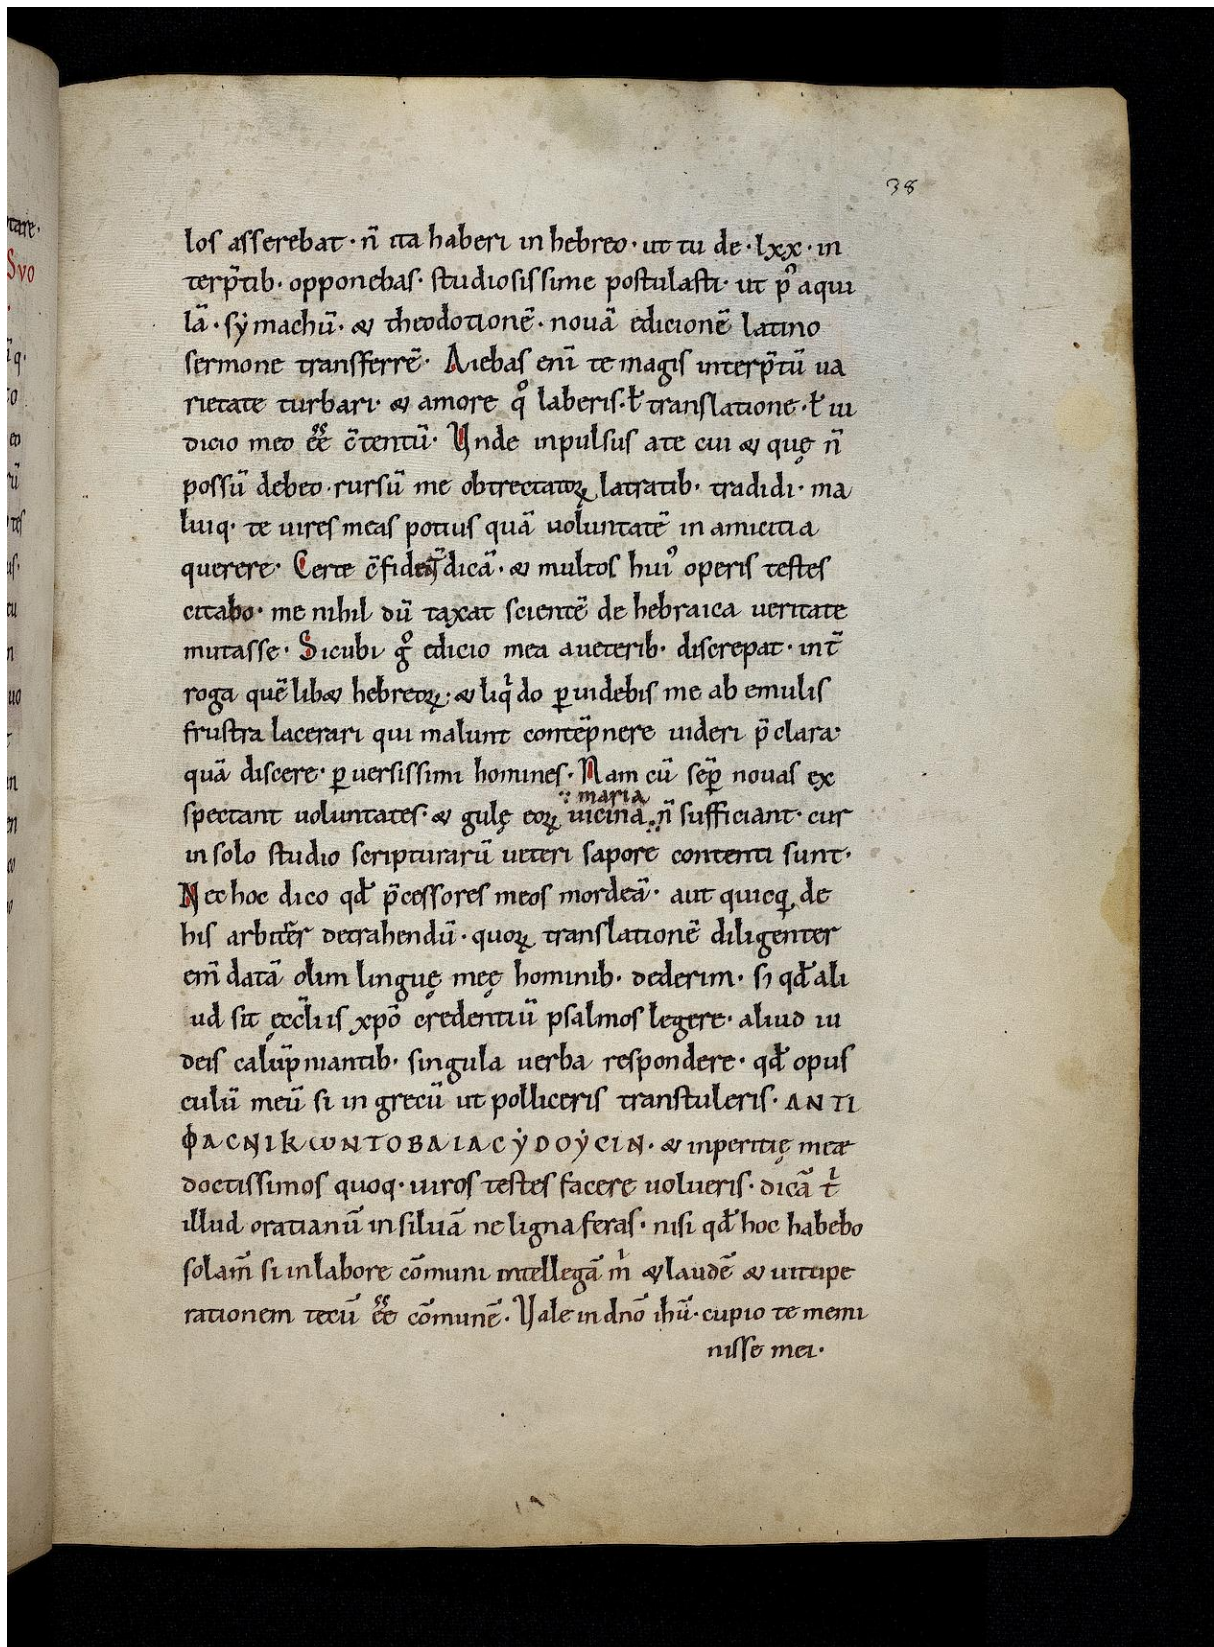 tare·
Svo
38
los asserebat· n̄ ita haberi in hebreo· ut tu de· lxx· in
terp̄tib· opponebas· studiosissime postulasti· ut p᷒ aqui
lā· sẏmachū· & theodotionē· nouā edicionē latino
sermone transferrē· Aiebas enī te magis interp̄tū ua
rietate turbari· & amore qͦ laberis· ł translatione· ł iu
dicio meo ēē c̄tentū· Vnde inpulsus ate cui & quę n̄
possū debeo· rursū me obtrectatoꝝ latratib· tradidi· ma
luiq· te uires meas potius quā uoluntatē in amicitia
querere· Certe c̄fident̄ dicā· & multos hui᷒ operis testes
citabo· me nihil dū taxat scientē de hebraica ueritate
mutasse· Sicubi gͦ edicio mea aueterib· discrepat· int̄
roga quēlib& hebreoꝝ· & liqͥdo ꝑuidebis me ab emulis
frustra lacerari qui malunt contēpnere uideri p̄clara·
quā discere· ꝑuersissimi homines· Nam cū sēꝑ nouas ex
maria
spectant uoluntates· & gulę eoꝝ uicina n̄ sufficiant· cur
in solo studio scripturarū ueteri sapore contenti sunt·
Nec hoc dico qđ p̄cessores meos mordeā· aut quicq̄ de
his arbitrēr detrahendū· quoꝝ translationē diligenter
em̄datā olim linguę meę hominib· dederim· sꝫ qđ ali
ud sit ęccl̄iis xpō credentiū psalmos legere· aliud iu
deis calūpniantib· singula uerba respondere· qđ opus
culū meū si in grecū ut polliceris transtuleris· ΑΝΤΙ
ΦΑCΝΙΚωΝΤΟΒΑΙΑCẎDOẎCIN· & inperitię meæ
doctissimos quoq· uiros testes facere uolueris· dicā tͥ
illud oratianū insiluā ne ligna feras· nisi qđ hoc habebo
solam̄ si inlabore cōmuni intellegā mͥ & laudē & uitupe
rationem tecū ēē cōmunē· Vale in dnō ihū· cupio te memi
nisse mei·